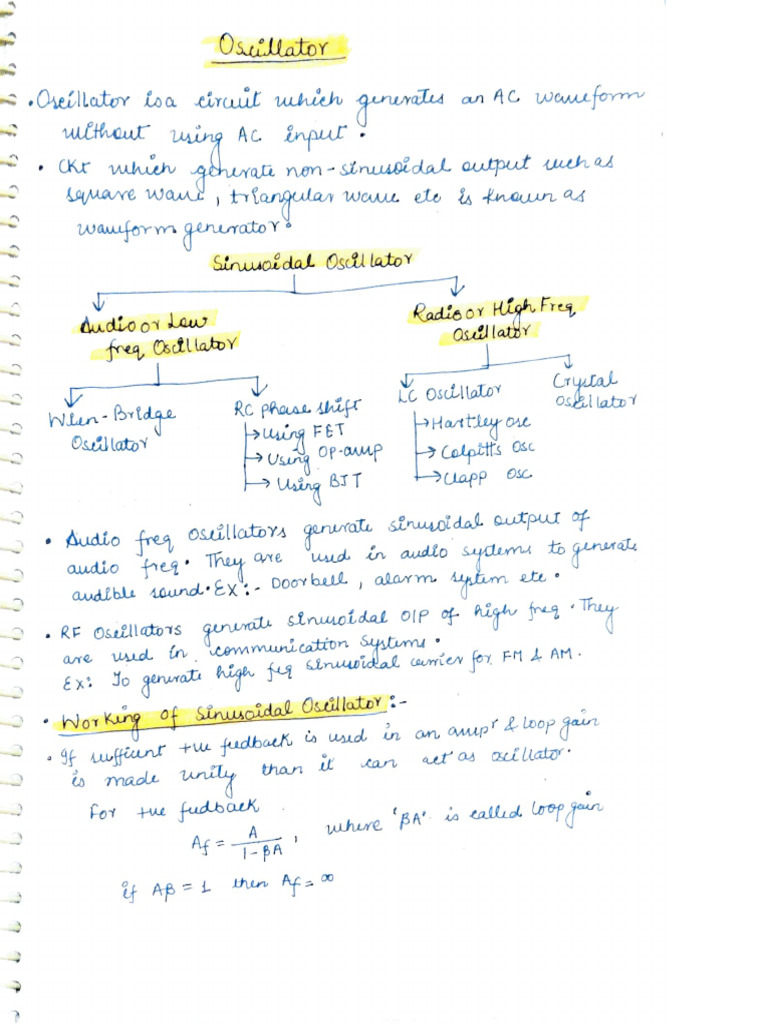 Oscillator
• Oscillator is a circuit which generates an AC waveform
without using AC input.
• CKt which generate non-sinusoidal output such as
square wave, triangular wave etc is known as
waveform generator.
Sinusoidal Oscillator
Audio or Low
freq Oscillator
Radio or High Freq
Oscillator
Wien-Bridge
Oscillator
RC phase shift
→ Using FET
→ Using OP-amp
→ Using BJT
LC Oscillator
→ Hartley osc
→ Colpitt's Osc
→ Clapp Osc
Crystal
Oscillator
• Audio freq Oscillators generate sinusoidal output of
audio freq. They are used in audio systems to generate
audible sound. Ex:- Doorbell, alarm system etc.
• RF Oscillators generate sinusoidal O/P of high freq. They
are used in communication systems.
Ex: To generate high feq sinusoidal carrier for FM & AM.
• Working of Sinusoidal Oscillator:-
• If sufficient +ve feedback is used in an ampr & loop gain
is made unity than it can act as oscillator.
For +ve feedback
Af = A / 1-βA, where 'βA' is called loop gain
if Aβ = 1 then Af = ∞